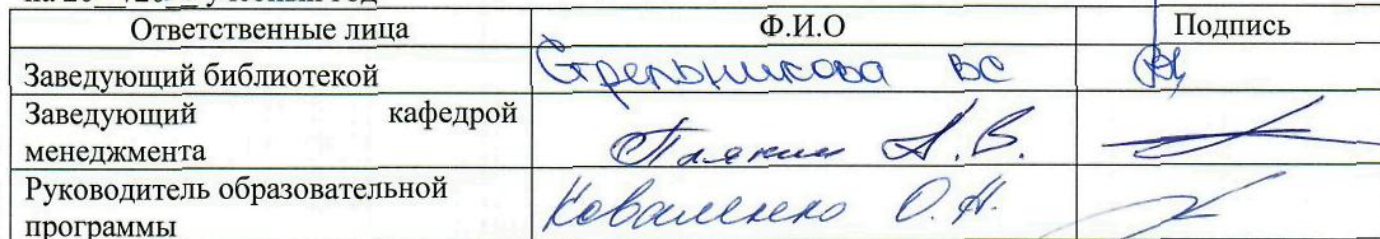 Ответственные лица Ф.И.О Подпись
Заведующий библиотекой Стрельникова ВС
Заведующий кафедрой
менеджмента А.В.
Руководитель образовательной
программы Коваленко О.Н.